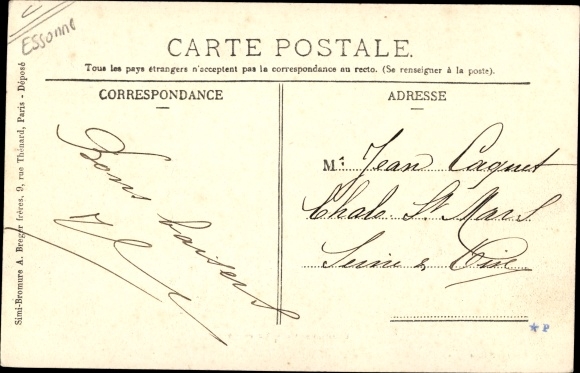 Essonne
CARTE POSTALE.
Tous les pays étrangers n'acceptent pas la correspondance au recto. (Se renseigner à la poste).
CORRESPONDANCE
Bons baisers
ADRESSE
M. Jean Caquet
Chalo St Mars
Seine & Oise
Simi-Bromure A. Breger frères, 9, rue Thénard, Paris - Déposé
P